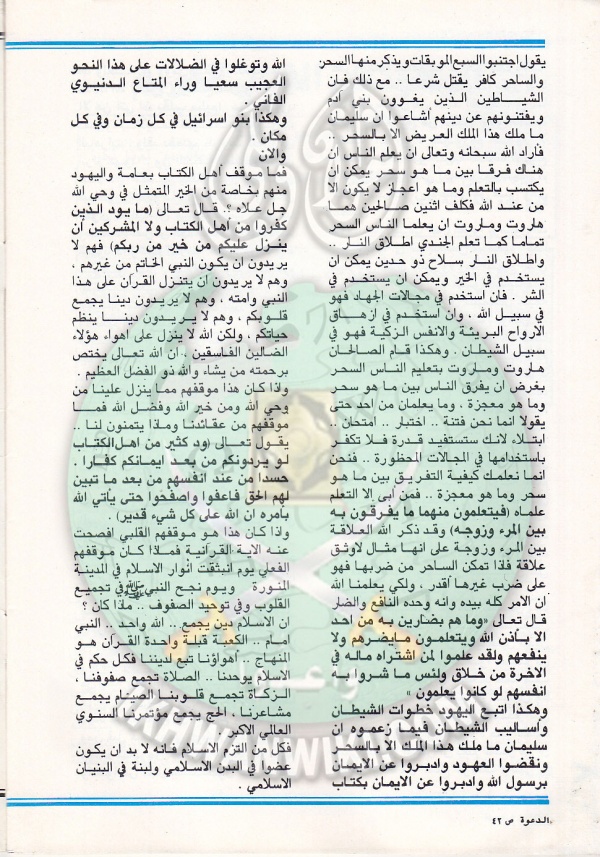 يقول اجتنبوا السبع الموبقات ويذكر منها السحر
والساحر كافر يقتل شرعا .. مع ذلك فان
الشياطين الذين يغوون بني آدم
ويفتنونهم عن دينهم أشاعوا ان سليمان
ما ملك هذا الملك العريض الا بالسحر ..
فأراد الله سبحانه وتعالى ان يعلم الناس ان
هناك فرقا بين ما هو سحر يمكن ان
يكتسب بالتعلم وما هو اعجاز لا يكون الا
من عند الله فكلف اثنين صالحين هما
هاروت وماروت ان يعلما الناس السحر
تماما كما تعلم الجندي اطلاق النار ..
واطلاق النار سلاح ذو حدين يمكن ان
يستخدم في الخير ويمكن ان يستخدم في
الشر . فان استخدم في مجالات الجهاد فهو
في سبيل الله ، وان أستخدم في ازهاق
الارواح البريئة والانفس الزكية فهو في
سبيل الشيطان . وهكذا قام الصالحان
هاروت وماروت بتعليم الناس السحر
بغرض ان يفرق الناس بين ما هو سحر
وما هو معجزة . وما يعلمان من احد حتى
يقولا انما نحن فتنة .. اختبار .. امتحان ..
ابتلاء لانك ستستفيد قدرة فلا تكفر
باستخدامها في المجالات المحظورة .. فنحن
انما نعلمك كيفية التفريق بين ما هو
سحر وما هو معجزة .. فمن أبى الا التعلم
علماه (فيتعلمون منهما ما يفرقون به
بين المرء وزوجه) وقد ذكر الله العلاقة
بين المرء وزوجة على انها مثال لاوثق
علاقة فاذا تمكن الساحر من ضربها فهو
على ضرب غيرها أقدر ، ولكي يعلمنا الله
ان الامر كله بيده وانه وحده النافع والضار
قال تعالى «وما هم بضارين به من احد
الا بأذن الله ويتعلمون مايضرهم ولا
ينفعهم ولقد علموا لمن اشتراه ماله في
الاخرة من خلاق ولئس ما شروا به
انفسهم لو كانوا يعلمون »
وهكذا اتبع اليهود خطوات الشيطان
وأساليب الشيطان فيما زعموه ان
سليمان ما ملك هذا الملك الا بالسحر
ونقضوا العهود وادبروا عن الايمان
برسول الله وادبروا عن الايمان بكتاب
الله وتوغلوا في الضلالات على هذا النحو
العجيب سعيا وراء المتاع الدنيوي
الفاني .
وهكذا بنو اسرائيل في كل زمان وفي كل
مكان .
والان
فما موقف أهل الكتاب بعامة واليهود
منهم بخاصة من الخير المتمثل في وحي الله
جل علاه ؟. قال تعالى (ما يود الذين
كفروا من أهل الكتاب ولا المشركين أن
ينزل عليكم من خير من ربكم) فهم لا
يريدون ان يكون النبي الخاتم من غيرهم ،
وهم لا يريدون ان يتنزل القرآن على هذا
النبي وامته ، وهم لا يريدون دينا يجمع
قلوبكم ، وهم لا يريدون دينا ينظم
حياتكم ، ولكن الله لا ينزل على اهواء هؤلاء
الضالين الفاسقين . ان الله تعالى يختص
برحمته من يشاء والله ذو الفضل العظيم .
واذا كان هذا موقفهم مما ينزل علينا من
وحي الله ومن خير الله وفضل الله فما
موقفهم من عقائدنا وماذا يتمنون لنا ..
يقول تعالى (ود كثير من اهل الكتاب
لو يردونكم من بعد ايمانكم كفارا .
حسدا من عند انفسهم من بعد ما تبين
لهم الحق فاعفوا واصفحوا حتى يأتي الله
بأمره ان الله على كل شيء قدير) .
واذا كان هذا هو موقفهم القلبي افصحت
عنه الاية القرآنية فماذا كان موقفهم
الفعلي يوم انبثقت أنوار الاسلام في المدينة
المنورة . ويوم نجح النبي ﷺ في تجميع
القلوب وفي توحيد الصفوف .. ماذا كان ؟
ان الاسلام دين يجمع .. الله واحد . النبي
امام .. الكعبة قبلة واحدة القرآن هو
المنهاج . أهواؤنا تبع لديننا فكل حكم في
الاسلام يوحدنا .. الصلاة تجمع صفوفنا ،
الزكاة تجمع قلوبنا الصيام يجمع
مشاعرنا ، الحج يجمع مؤتمرنا السنوي
العالي الاكبر .
فكل من التزم الاسلام فانه لا بد ان يكون
عضوا في البدن الاسلامي ولبنة في البنيان
الاسلامي .
الدعوة ص ٤٢